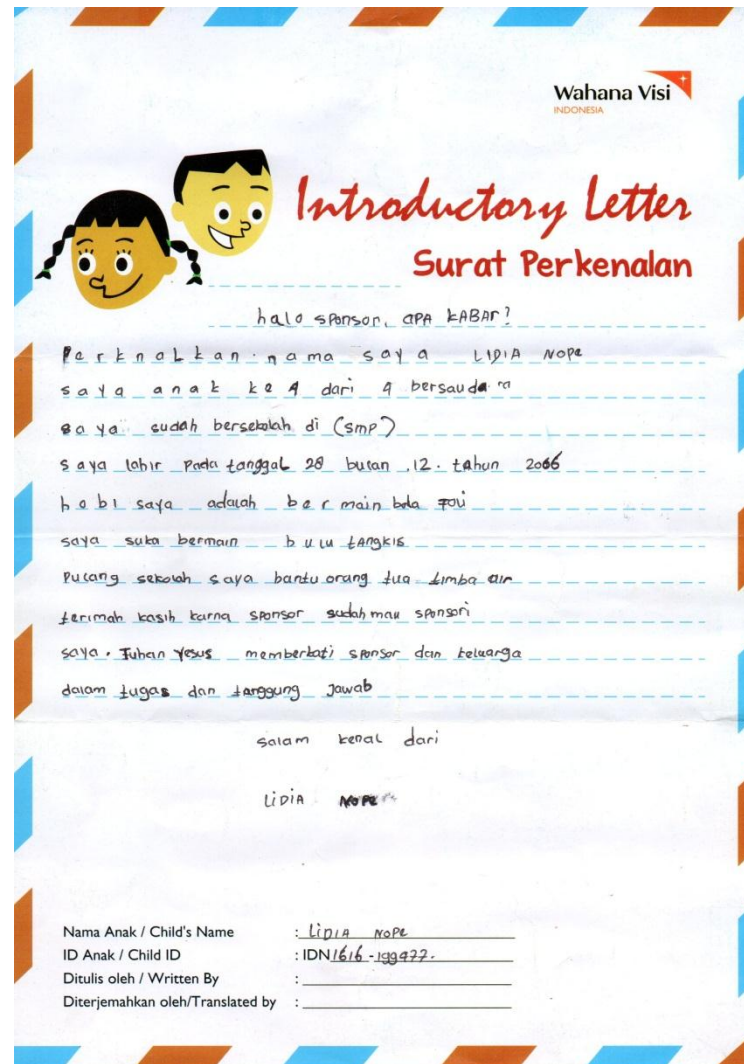 Wahana Visi
INDONESIA
Introductory Letter
Surat Perkenalan
halo sponsor, apa KABAr?
Perknalkan nama saya LIDIA NOPE
saya anak ke 4 dari 4 bersaudara
saya sudah bersekolah di (smp)
saya lahir pada tanggal 28 bulan .12. tahun 2006
hobi saya adalah bermain bola foli
saya suka bermain bulu tangkis
pulang sekolah saya bantu orang tua timba air
terimah kasih karna sponsor sudah mau sponsori
saya. Tuhan Yesus memberkati sponsor dan keluarga
dalam tugas dan tanggung jawab
salam kenal dari
LIDIA NOPE
Nama Anak / Child's Name : LIDIA NOPE
ID Anak / Child ID : IDN1616-199477.
Ditulis oleh / Written By :
Diterjemahkan oleh/Translated by :